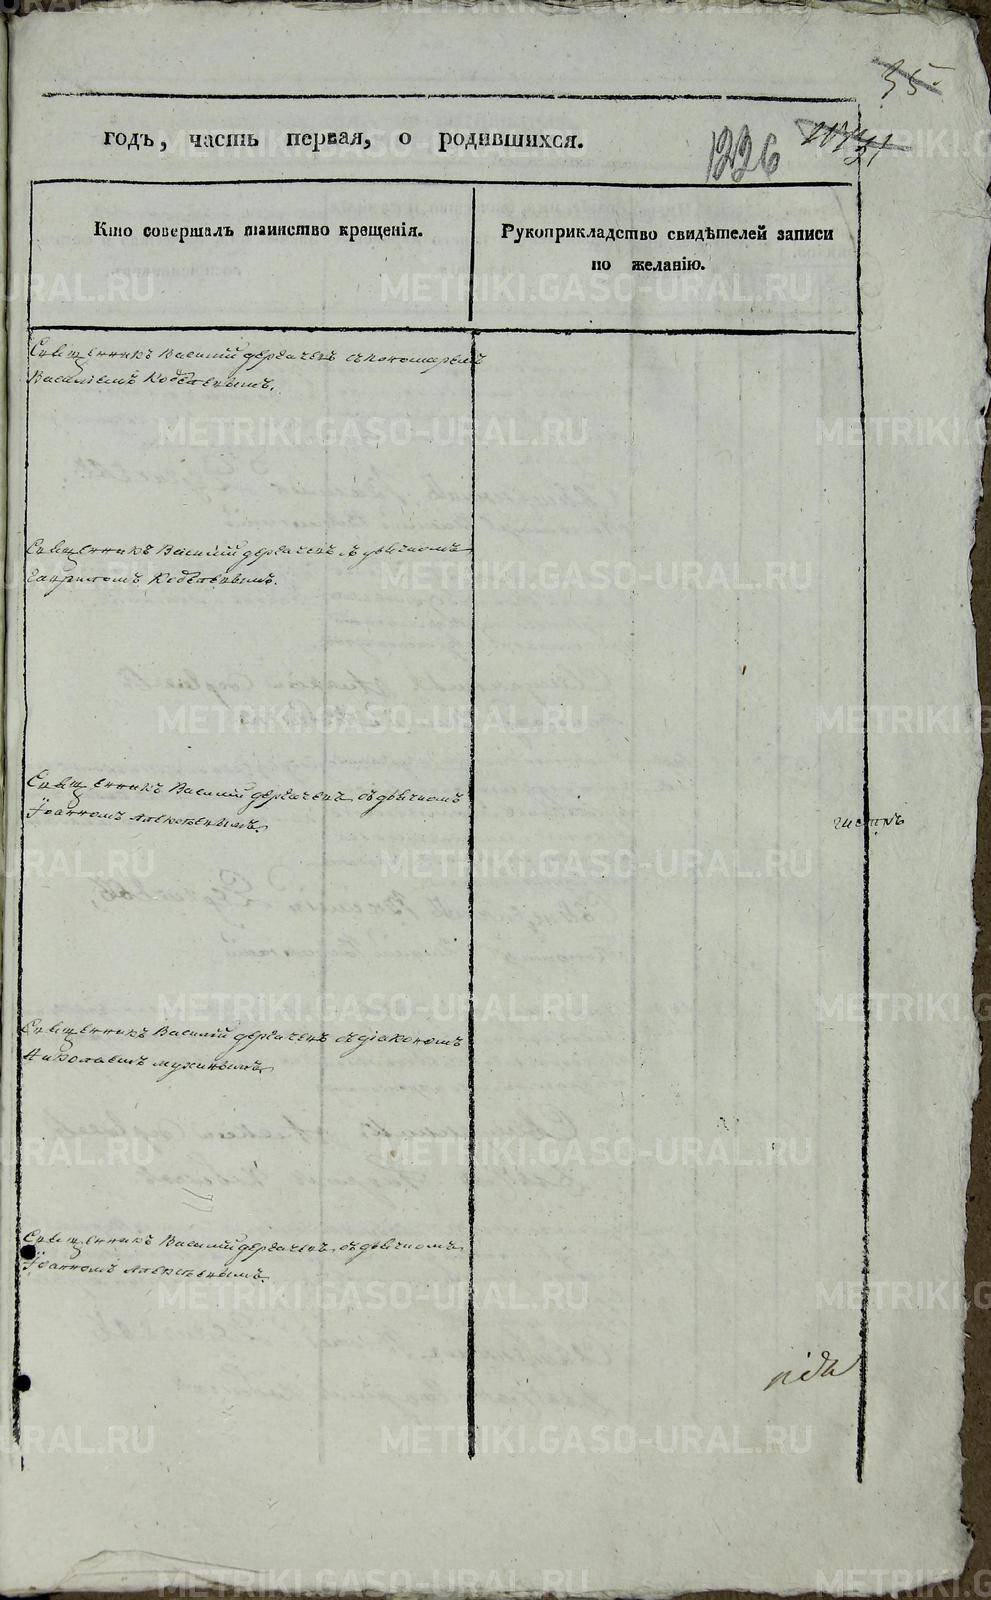 35.
годъ, часть первая, о родившихся.
1226
21
Кто совершалъ таинство крещенія.
Рукоприкладство свидѣтелей записи
по желанію.
Священникъ Василій Дергачевъ съ пономаремъ
Василіемъ
Священникъ Василій Дергачевъ съ дьячкомъ
Гавриломъ
Священникъ Василій Дергачевъ съ дьячкомъ
Іоанномъ Алексѣевымъ.
Священникъ Василій Дергачевъ съ діакономъ
Николаемъ Мухинымъ.
Священникъ Василій Дергачевъ съ дьячкомъ
Іоанномъ Алексѣевымъ.
METRIKI.GASO-URAL.RU